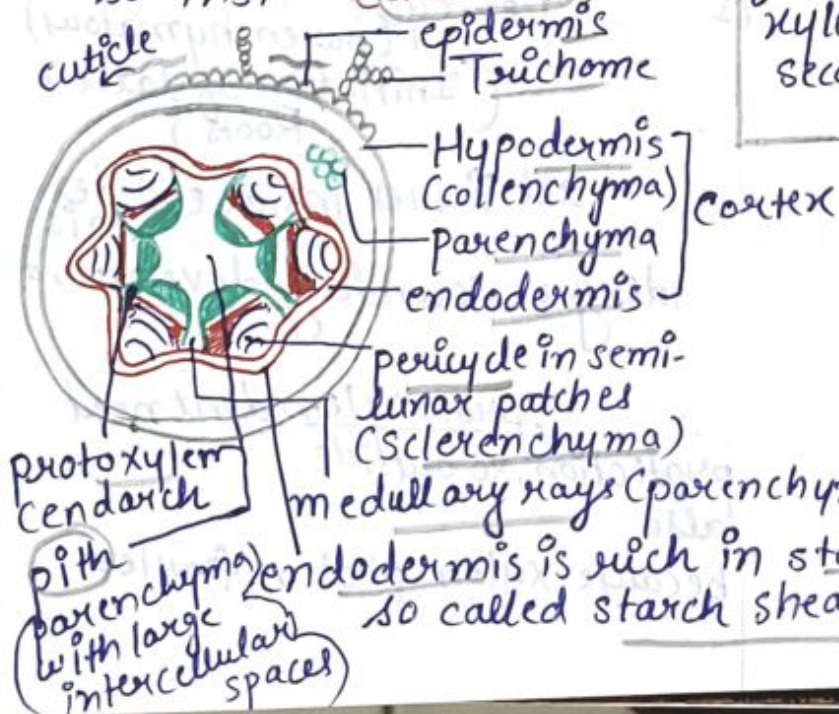 cuticle
epidermis
Trichome
Hypodermis
(collenchyma)
parenchyma
endodermis
cortex
pericycle in semi-
lunar patches
(Sclerenchyma)
protoxylem
cendarch
medullary rays (parenchy
pith
parenchyma)
with large
intercellular
spaces
endodermis is rich in
so called starch
xyle